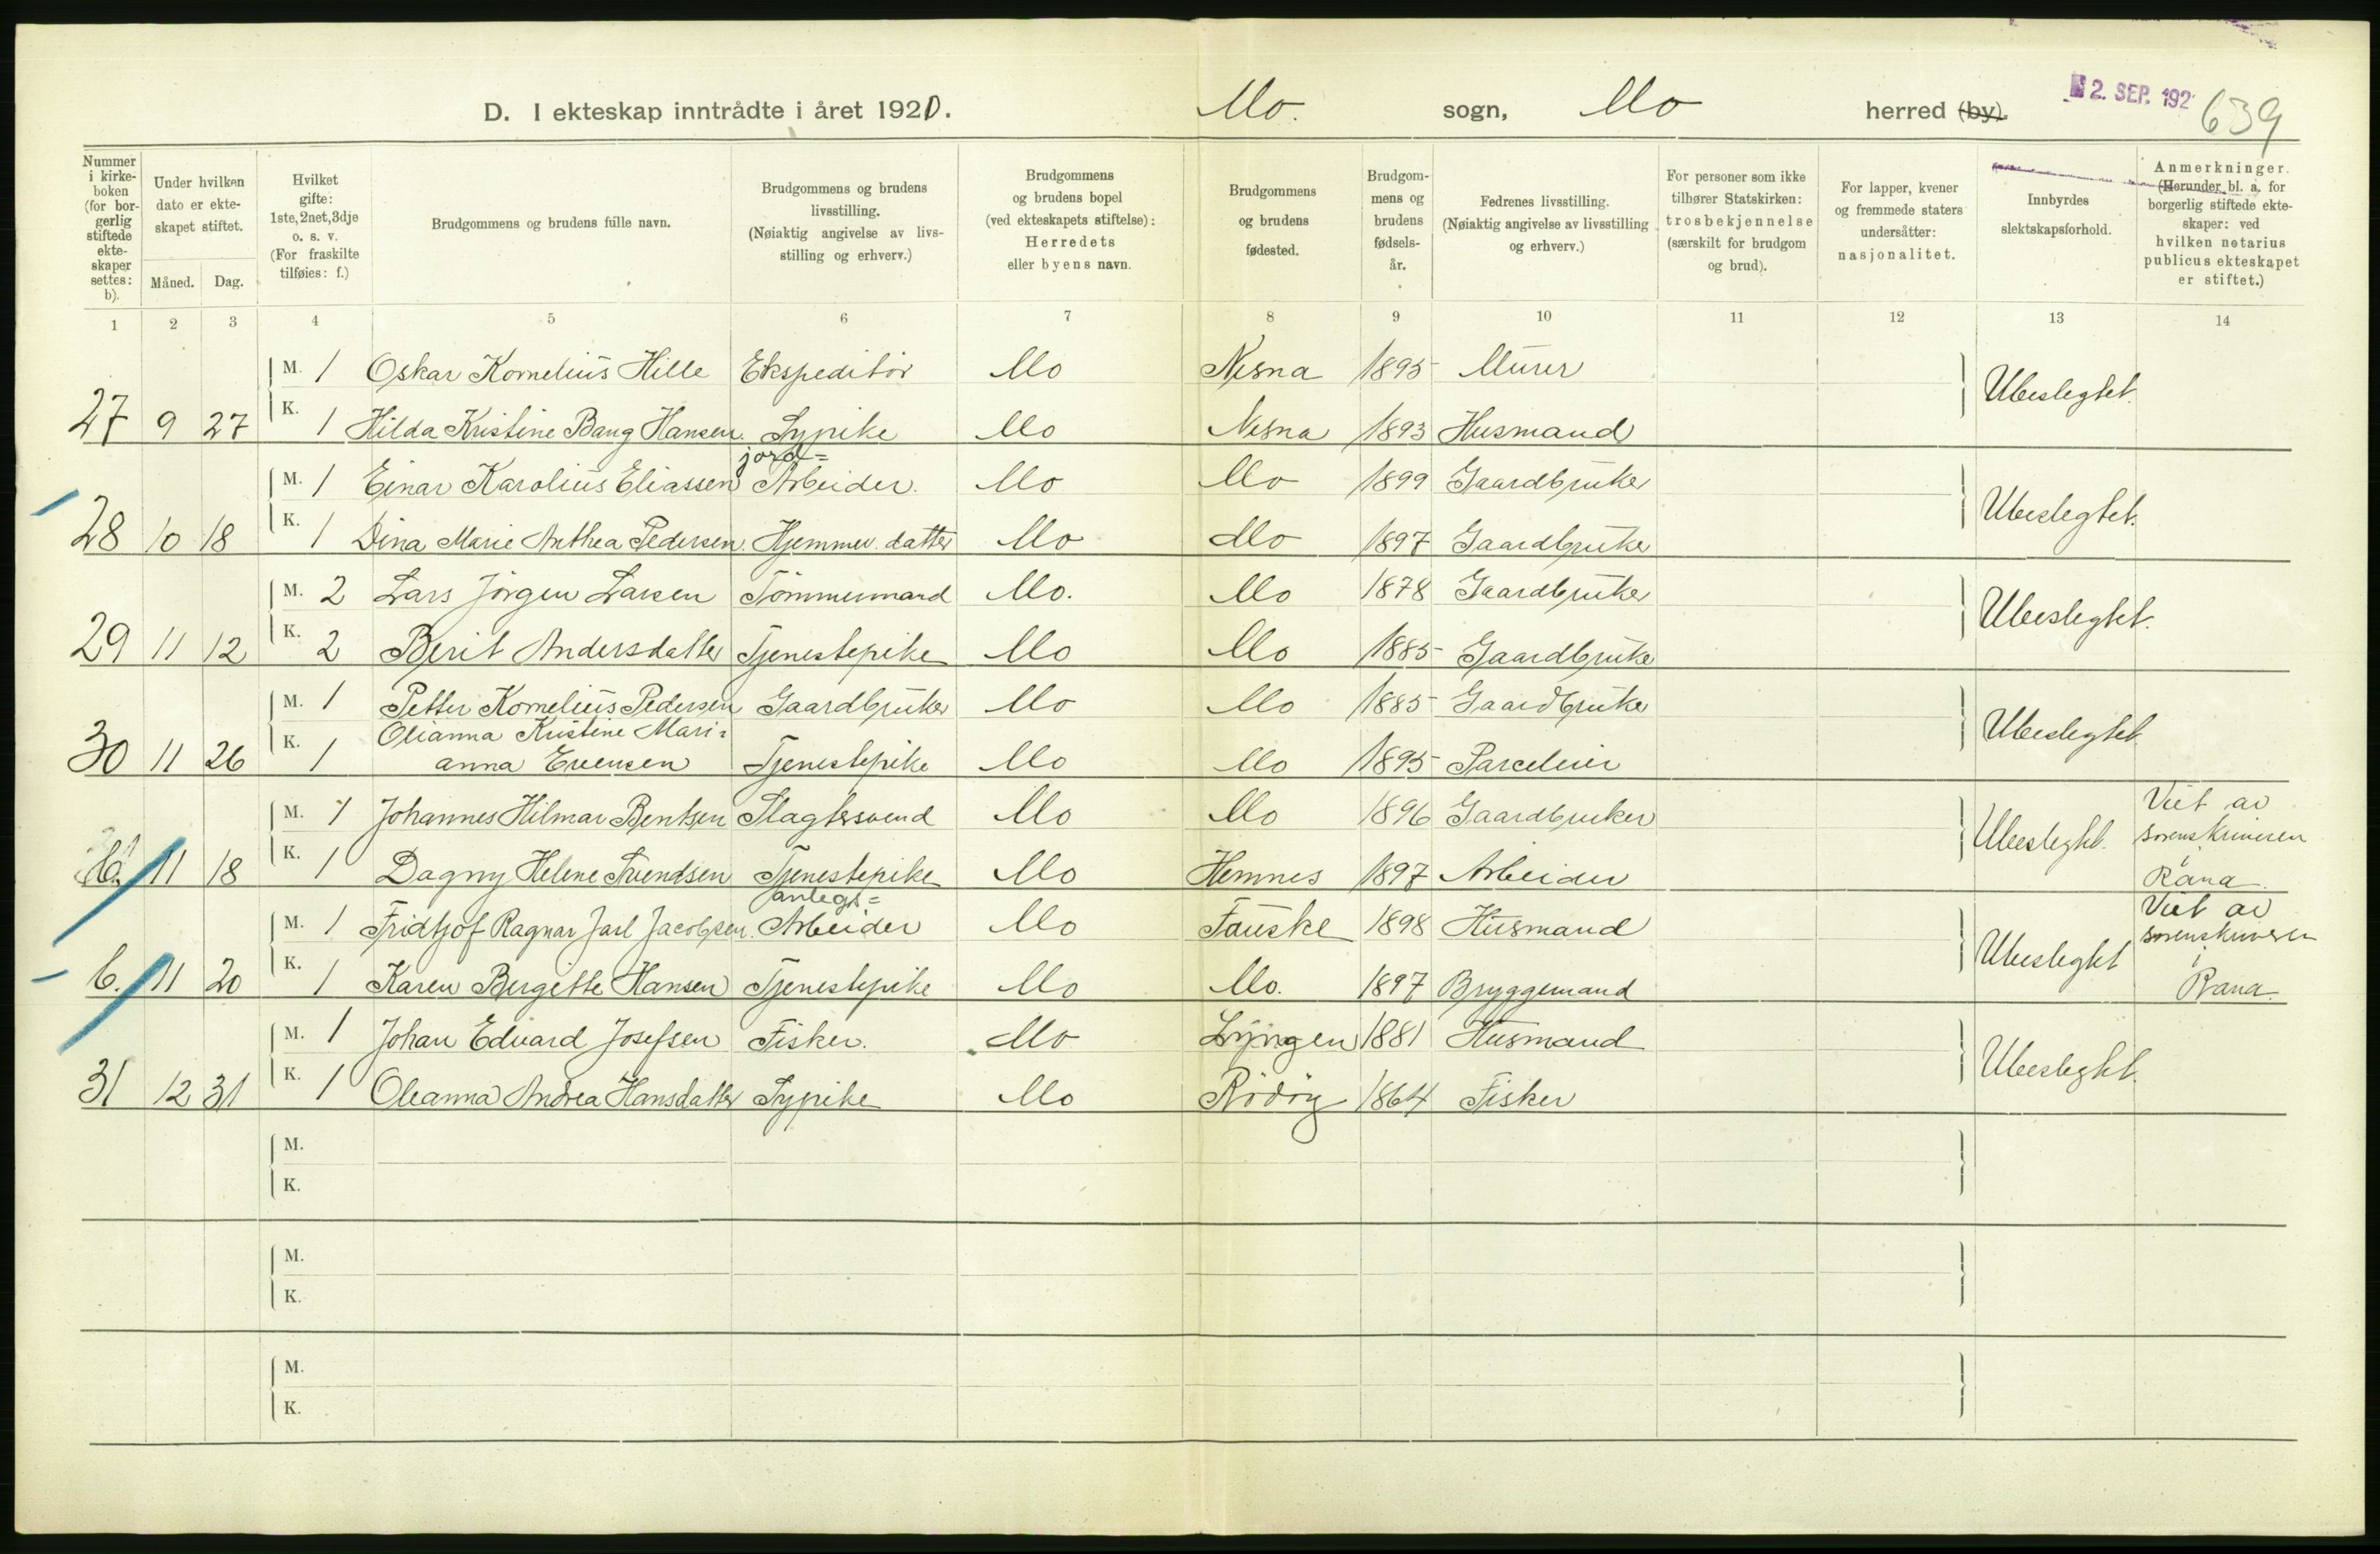 D. I ekteskap inntrådte i året 1920. Mo. sogn, Mo herred (by).
2. SEP. 192
639
Nummer i kirke-boken (for bor-gerlig stiftede ekte-skaper settes: b).
Under hvilken dato er ekte-skapet stiftet.
Måned. Dag.
Hvilket gifte: 1ste, 2net, 3dje o. s. v. (For fraskilte tilføies: f.)
Brudgommens og brudens fulle navn.
Brudgommens og brudens livsstilling. (Nøiaktig angivelse av livs-stilling og erhverv.)
Brudgommens og brudens bopel (ved ekteskapets stiftelse): Herredets eller byens navn.
Brudgommens og brudens fødested.
Brudgom-mens og brudens fødsels-år.
Fedrenes livsstilling. (Nøiaktig angivelse av livsstilling og erhverv.)
For personer som ikke tilhører Statskirken: trosbekjennelse (særskilt for brudgom og brud).
For lapper, kvener og fremmede staters undersåtter: nasjonalitet.
Innbyrdes slektskapsforhold.
Anmerkninger. (Herunder bl. a. for borgerlig stiftede ekte-skaper: ved hvilken notarius publicus ekteskapet er stiftet.)
1 2 3 4 5 6 7 8 9 10 11 12 13 14
M. 1 Oskar Kornelius Hille Ekspeditør Mo Nesna 1895 Murer Ubeslegtet.
27 9 27 K. 1 Hilda Kristine Bang Hansen. Sypike Mo Nesna 1893 Husmand
jord=
M. 1 Einar Karolius Eliassen Arbeider. Mo Mo 1899 Gaardbruker Ubeslegtet.
28 10 18 K. 1 Dina Marie Anthea Pedersen. Hjemmev. datter Mo Mo 1897 Gaardbruker
M. 2 Lars Jørgen Larsen Tømmermand Mo. Mo 1878 Gaardbruker Ubeslegtet.
29 11 12 K. 2 Berit Andersdatter Tjenestepike Mo Mo 1885 Gaardbruker
M. 1 Petter Kornelius Pedersen Gaardbruker Mo Mo 1885 Gaardbruker Ubeslegtet
Olianna Kristine Mari=
30 11 26 K. 1 anna Evensen Tjenestepike Mo Mo 1895 Parcelier
M. 1 Johannes Hilmar Bentsen Slagtersvend Mo Mo 1896 Gaardbruker Ubeslegtet. Viet av sorenskriveren i Rana.
b. 11 18 K. 1 Dagny Helene Svendsen Tjenestepike Mo Hemnes 1897 Arbeider
anlegs=
M. 1 Fridtjof Ragnar Jarl Jacobsen. Arbeider Mo Fauske 1898 Husmand Ubeslegtet Viet av sorenskriveren i Rana.
b. 11 20 K. 1 Karen Bergitte Hansen Tjenestepike Mo Mo. 1897 Bryggemand
M. 1 Johan Edvard Josefsen Fisker. Mo Lyngen 1881 Husmand Ubeslegtet.
31 12 31 K. 1 Oleanna Andrea Hansdatter Sypike Mo Rødøy 1864 Fisker
M.
K.
M.
K.
M.
K.